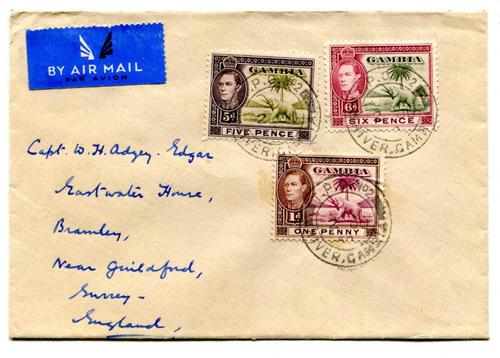 BY AIR MAIL
PAR AVION
GAMBIA
5d
FIVE PENCE
GAMBIA
6d
SIX PENCE
GAMBIA
1d
ONE PENNY
RIVER, GAMBIA
Capt. W. H. Adgey-Edgar
Eastwater House,
Bramley,
Near Guildford,
Surrey-
England,